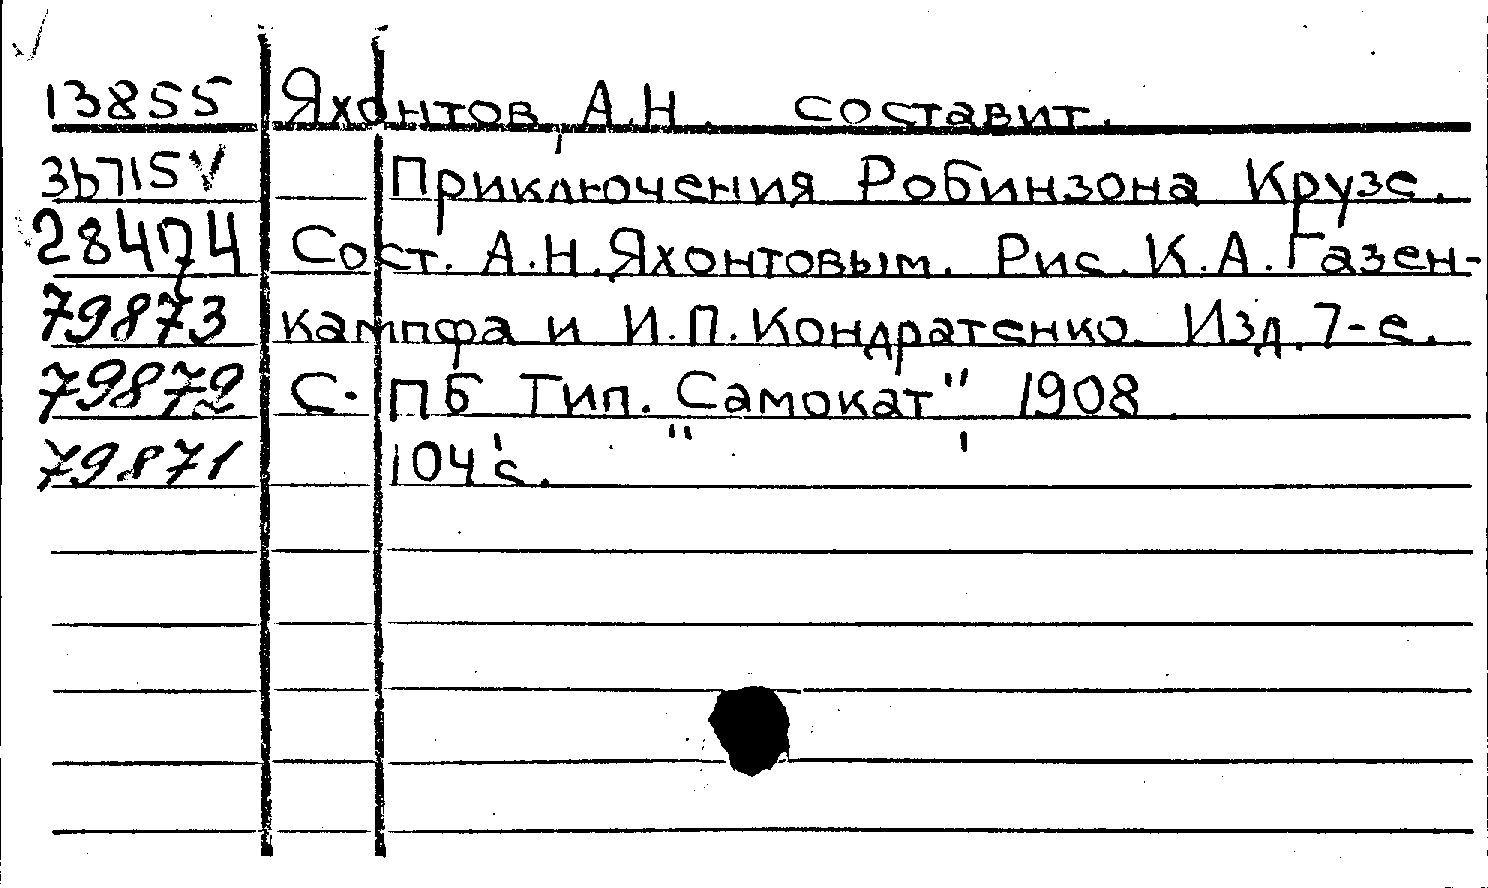 13855 Яхонтов, А.Н. составит.
36715 V Приключения Робинзона Крузе.
28474 Сост. А.Н.Яхонтовым. Рис. К.А.Газен-
79873 кампфа и И.П.Кондратенко. Изд. 7-е.
79872 С.-ПБ Тип. „Самокат", 1908
79871 104 с.